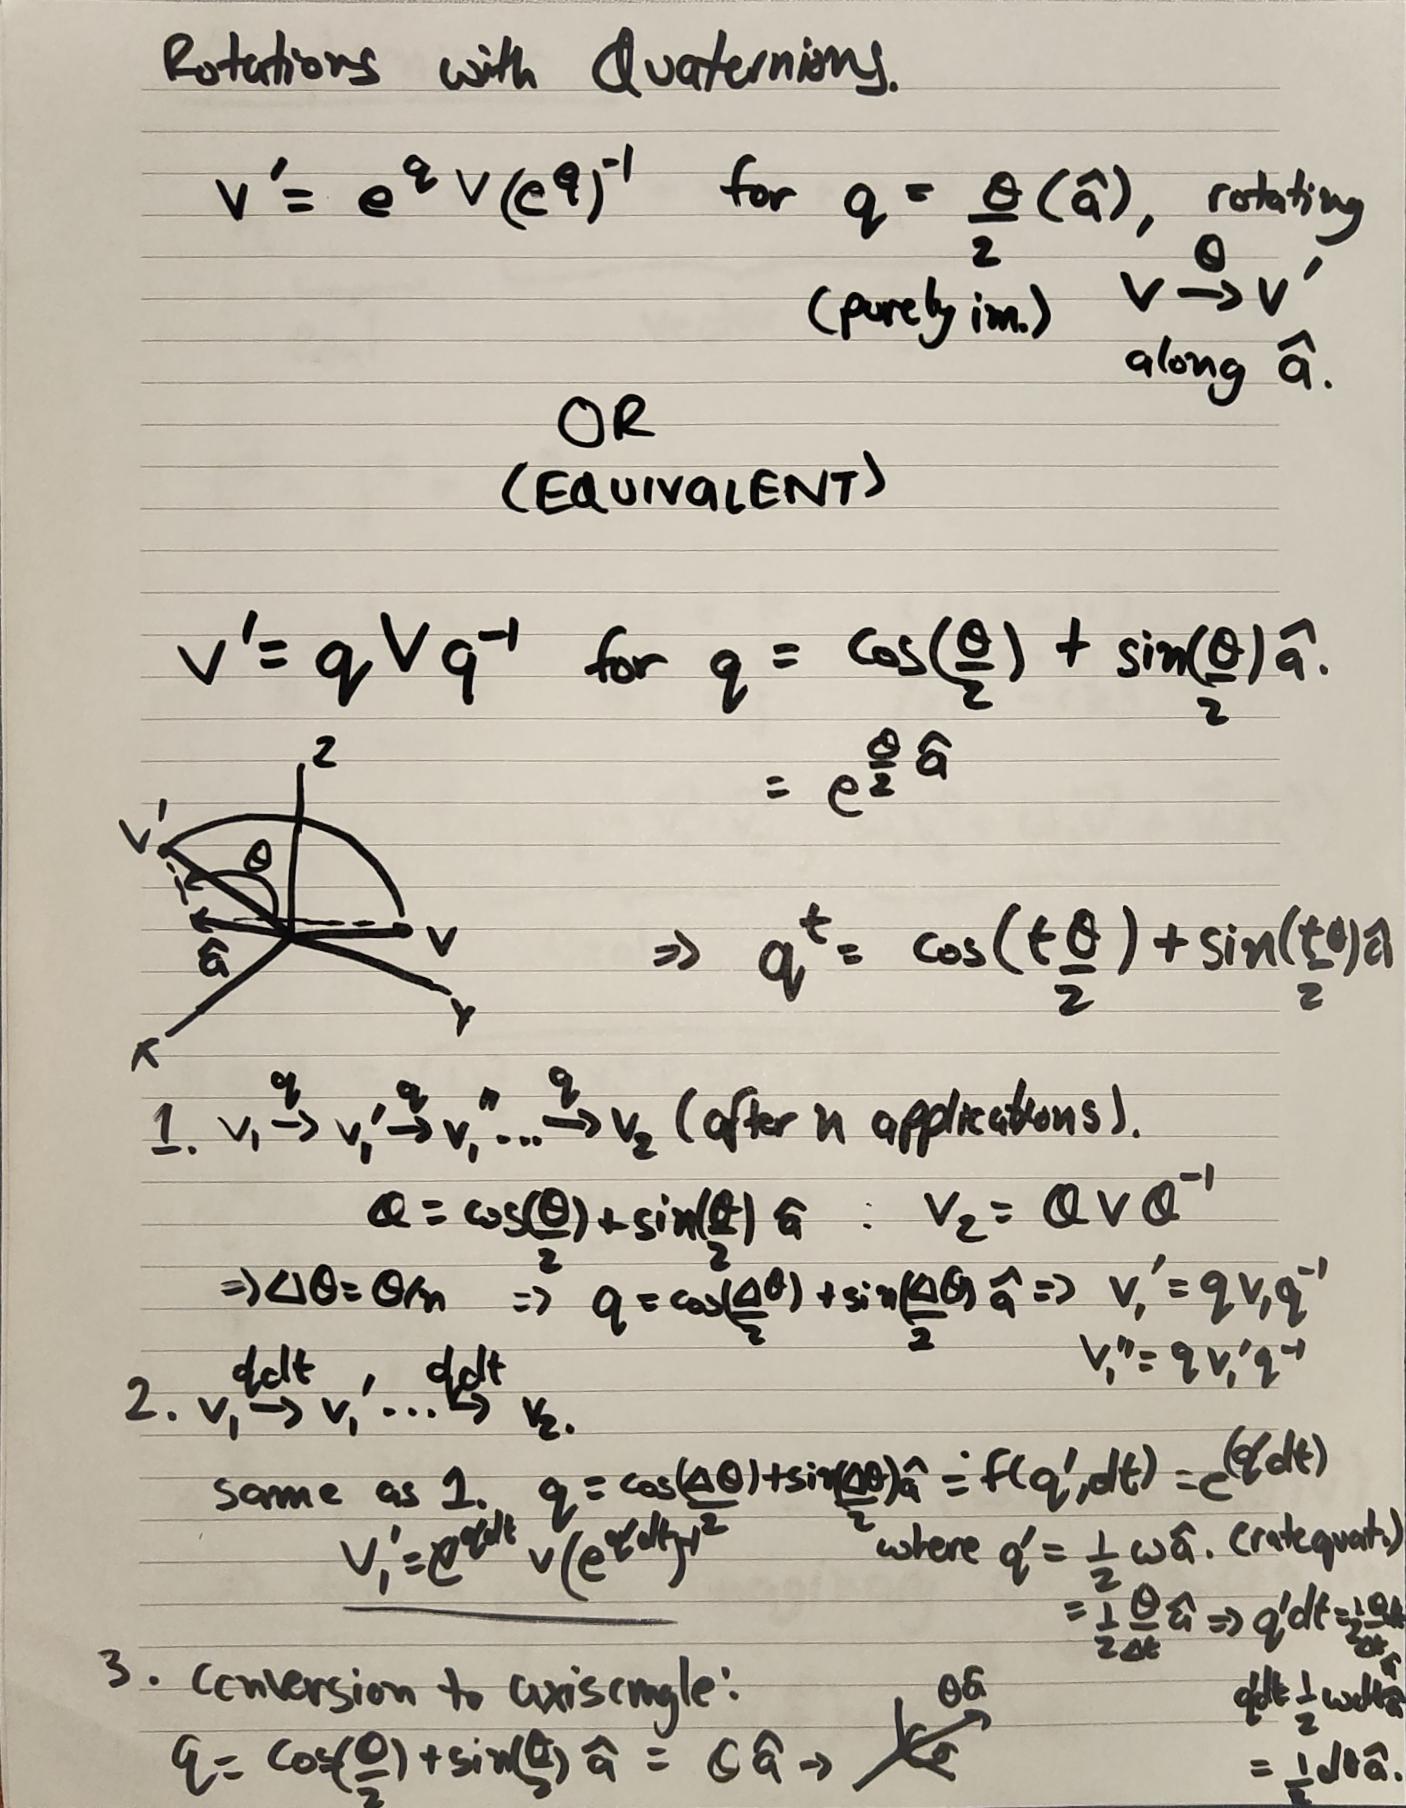 Rotations with Quaternions.
v' = e^q v (e^q)^-1 for q = θ/2 (â), rotating
(purely im.) v →θ v'
along â.
OR
(EQUIVALENT)
v' = q v q^-1 for q = cos(θ/2) + sin(θ/2) â.
= e^(θ/2 â)
z
v'
θ
â
v
y
x
⇒ q^t = cos(tθ/2) + sin(tθ/2) â
1. v₁ →q v₁' →q v₁'' ... →q v₂ (after n applications).
Q = cos(θ/2) + sin(θ/2) â : v₂ = Q v Q^-1
⇒ Δθ = θ/n ⇒ q = cos(Δθ/2) + sin(Δθ/2) â ⇒ v₁' = q v₁ q^-1
v₁'' = q v₁' q^-1
2. v₁ →qdt v₁' ... →qdt v₂.
same as 1. q = cos(Δθ/2) + sin(Δθ/2) â = f(q', dt) = e^(q'dt)
v₁' = e^(q'dt) v (e^(q'dt))^-1 where q' = 1/2 ω â. (rate quat.)
= 1/2 θ/Δt â ⇒ q'dt =
q'dt = 1/2 ωdt â
= 1/2 dθ â.
3. Conversion to axis angle:
q = cos(θ/2) + sin(θ/2) â = θ â →
θâ